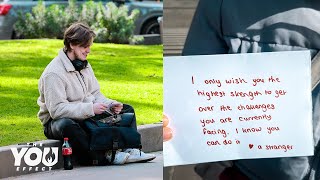 I only wish you the
highest strength to get
over the challenges
you are currently
facing. I know you
can do it ♥ a stranger
THE
YOU
EFFECT